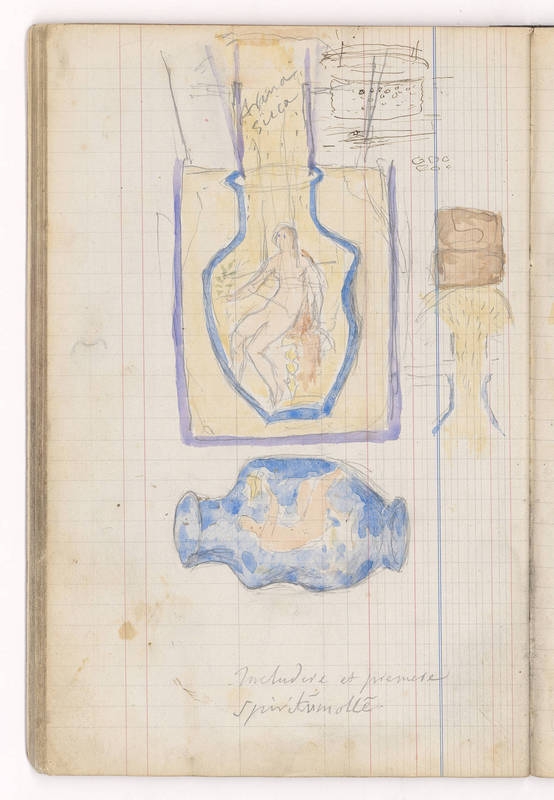 Arena
sicca
Includere et premere
Spiritū mollē